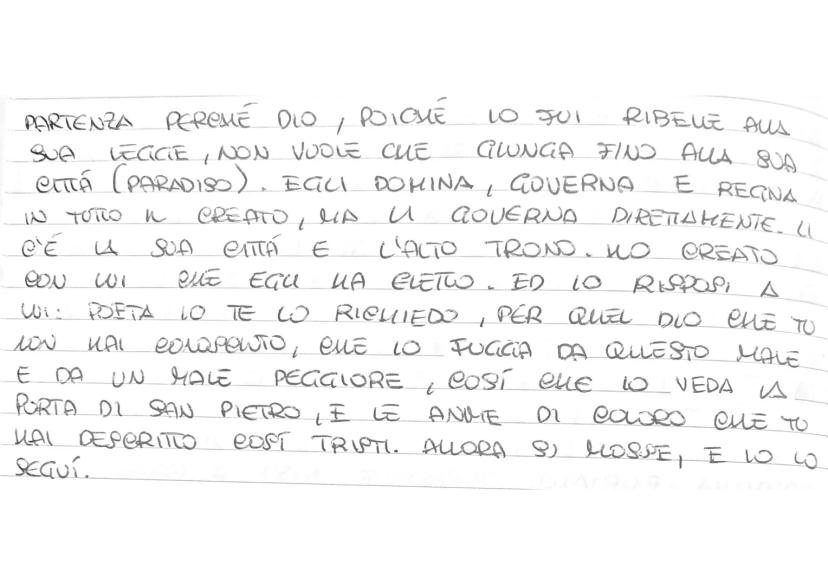 PARTENZA PERCHÉ DIO, POICHÉ IO FUI RIBELLE ALLA
SUA LEGGE, NON VUOLE CHE GIUNGA FINO ALLA SUA
CITTÁ (PARADISO). EGLI DOMINA, GOVERNA E REGNA
IN TUTTO IL CREATO, MA LI GOVERNA DIRETTAMENTE. LI
C'É LA SUA CITTÁ E L'ALTO TRONO. HO CREATO
CON LUI CHE EGLI HA ELETTO. ED IO RISPOSI A
LUI: POETA IO TE LO RICHIEDO, PER QUEL DIO CHE TU
NON HAI CONOSCIUTO, CHE IO FUGGIA DA QUESTO MALE
E DA UN MALE PEGGIORE, COSÍ CHE IO VEDA LA
PORTA DI SAN PIETRO, E LE ANIME DI COLORO CHE TU
HAI DESCRITTO COSÍ TRISTI. ALLORA SI MOSSE, E IO LO
SEGUÍ.